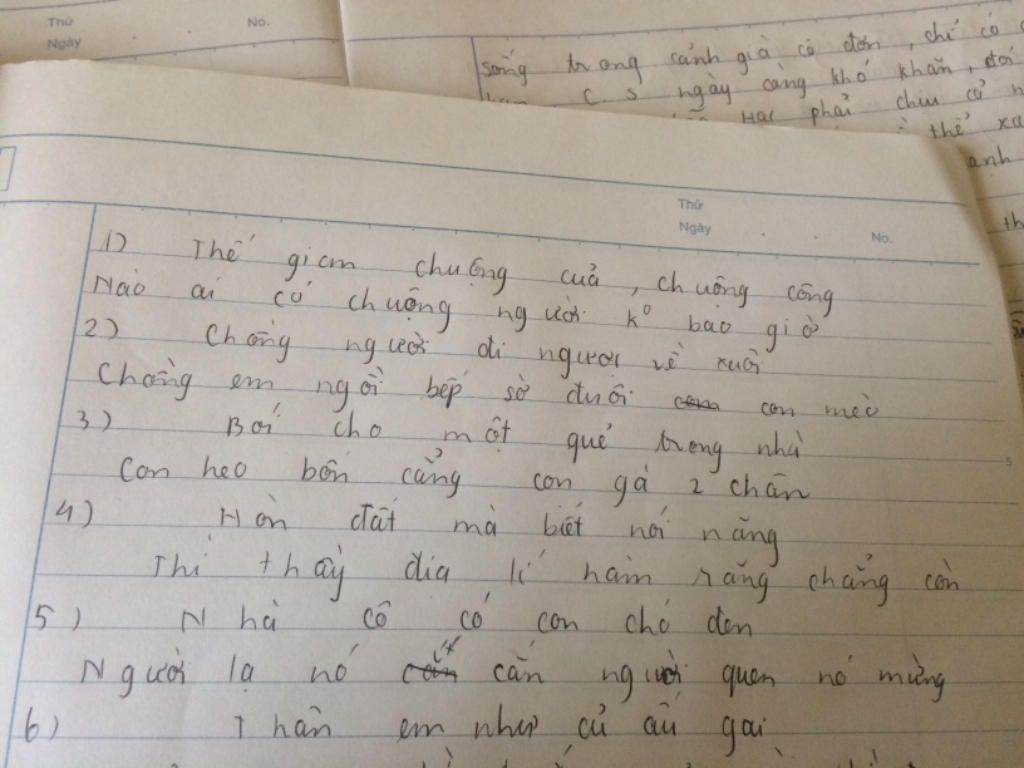 Thứ
No.
Ngày
sống trong cảnh già cô đơn, chỉ có
C.S ngày càng khó khăn, đói
Hạc phải chịu cử
thể xu
anh
th
Thứ
Ngày
No.
1) Thế gian chuộng của, chuông công
Nào ai có chuộng người k⁰ bao giờ
2) Chồng người đi ngươi về xuôi
Chồng em ngồi bếp sờ đuôi con mèo
3) Bói cho một quẻ trong nhà
Con heo bốn cẳng con gà 2 chân
4) Hòn đất mà biết nói năng
Thì thầy địa lí hàm răng chẳng còn
5) Nhà cô có con chó đen
Người lạ nó cắn người quen nó mừng
6) Thân em như củ ấu gai